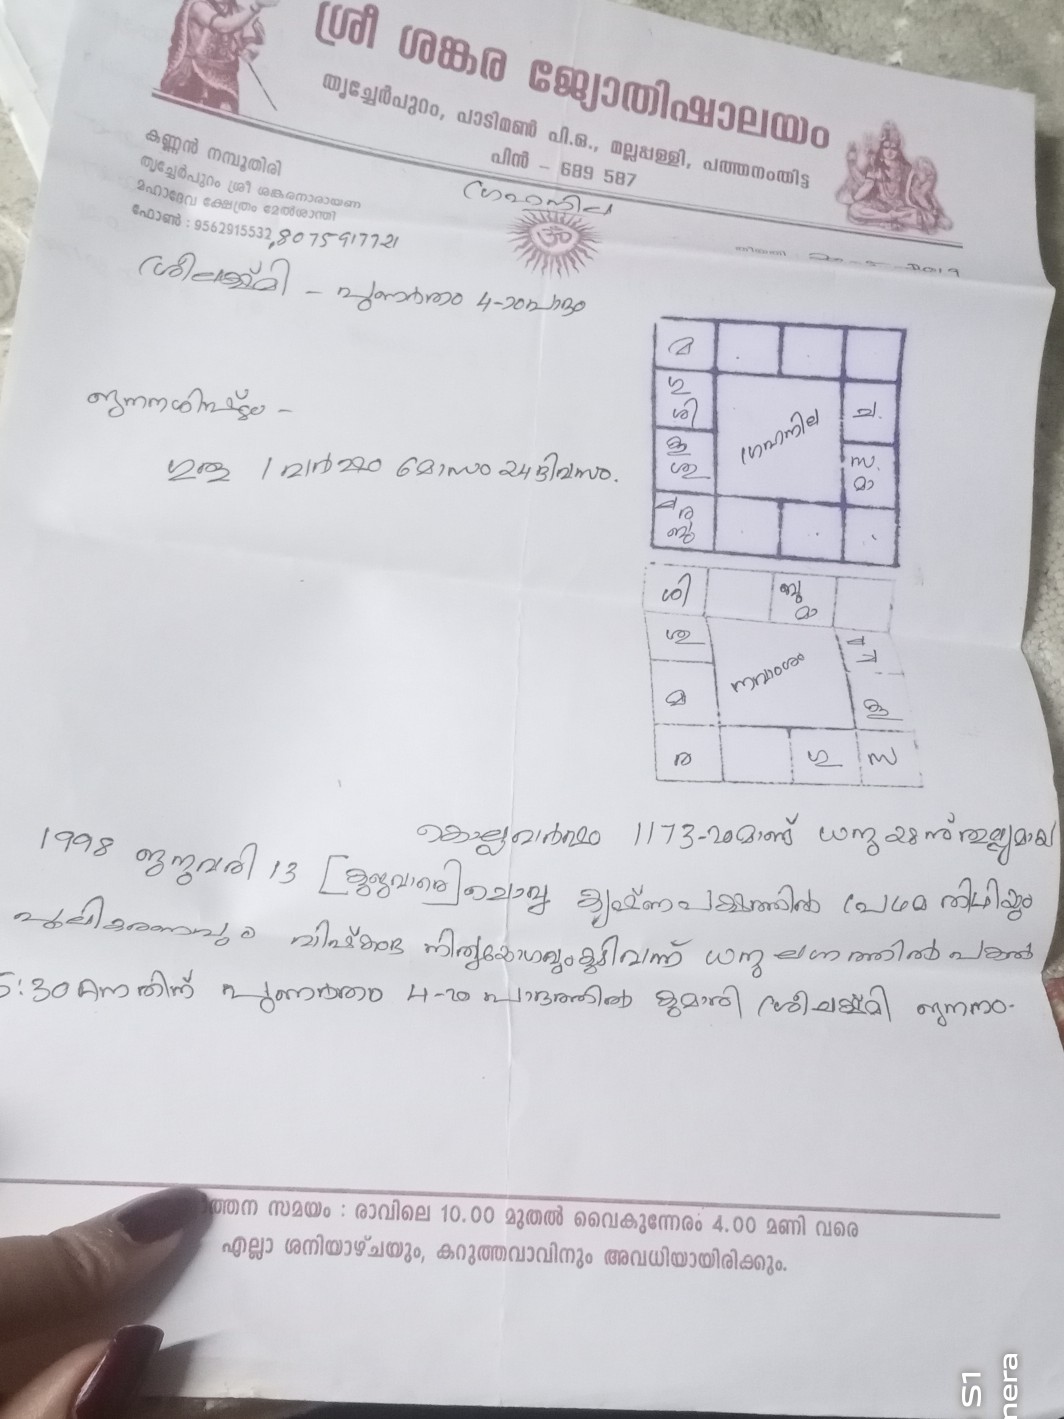 ശ്രീ ശങ്കര ജ്യോതിഷാലയം
തൃച്ചേർപുറം, പാടിമൺ പി.ഒ., മല്ലപ്പള്ളി, പത്തനംതിട്ട
പിൻ - 689 587
കണ്ണൻ നമ്പൂതിരി
തൃച്ചേർപുറം ശ്രീ ശങ്കരനാരായണ
മഹാദേവ ക്ഷേത്രം മേൽശാന്തി
ഫോൺ : 9562915532, 8075917721
ഗ്രഹനില
ശ്രീലക്ഷ്മി - പുണർതം 4-ാംപാദം
മ
ഗു
ശി
ച.
ഗ്രഹനില
കു
ശു
സ.
മാ
ര
ബു
ജനനശിഷ്ടം -
ഗുരു 1 വർഷം 6 മാസം 24 ദിവസം.
ശി
ബു
മാ
ശു
നവാംശം
മ
കു
ര
ഗു
സ
കൊല്ലവർഷം 1173-ാമാണ്ട് ധനു 28ന്
1998 ജനുവരി 13 [കുജവാരെ] ചൊവ്വ കൃഷ്ണപക്ഷത്തിൽ പ്രഥമ തിഥിയും
പുലികരണവും നിത്യയോഗവുംകൂടിവന്ന് ധനു ലഗ്നത്തിൽ പകൽ
5:30 പുണർതം 4-ാം പാദത്തിൽ കുമാരി ശ്രീലക്ഷ്മി ജനനം.
സമയം : രാവിലെ 10.00 മുതൽ വൈകുന്നേരം 4.00 മണി വരെ
എല്ലാ ശനിയാഴ്ചയും, കറുത്തവാവിനും അവധിയായിരിക്കും.
S1